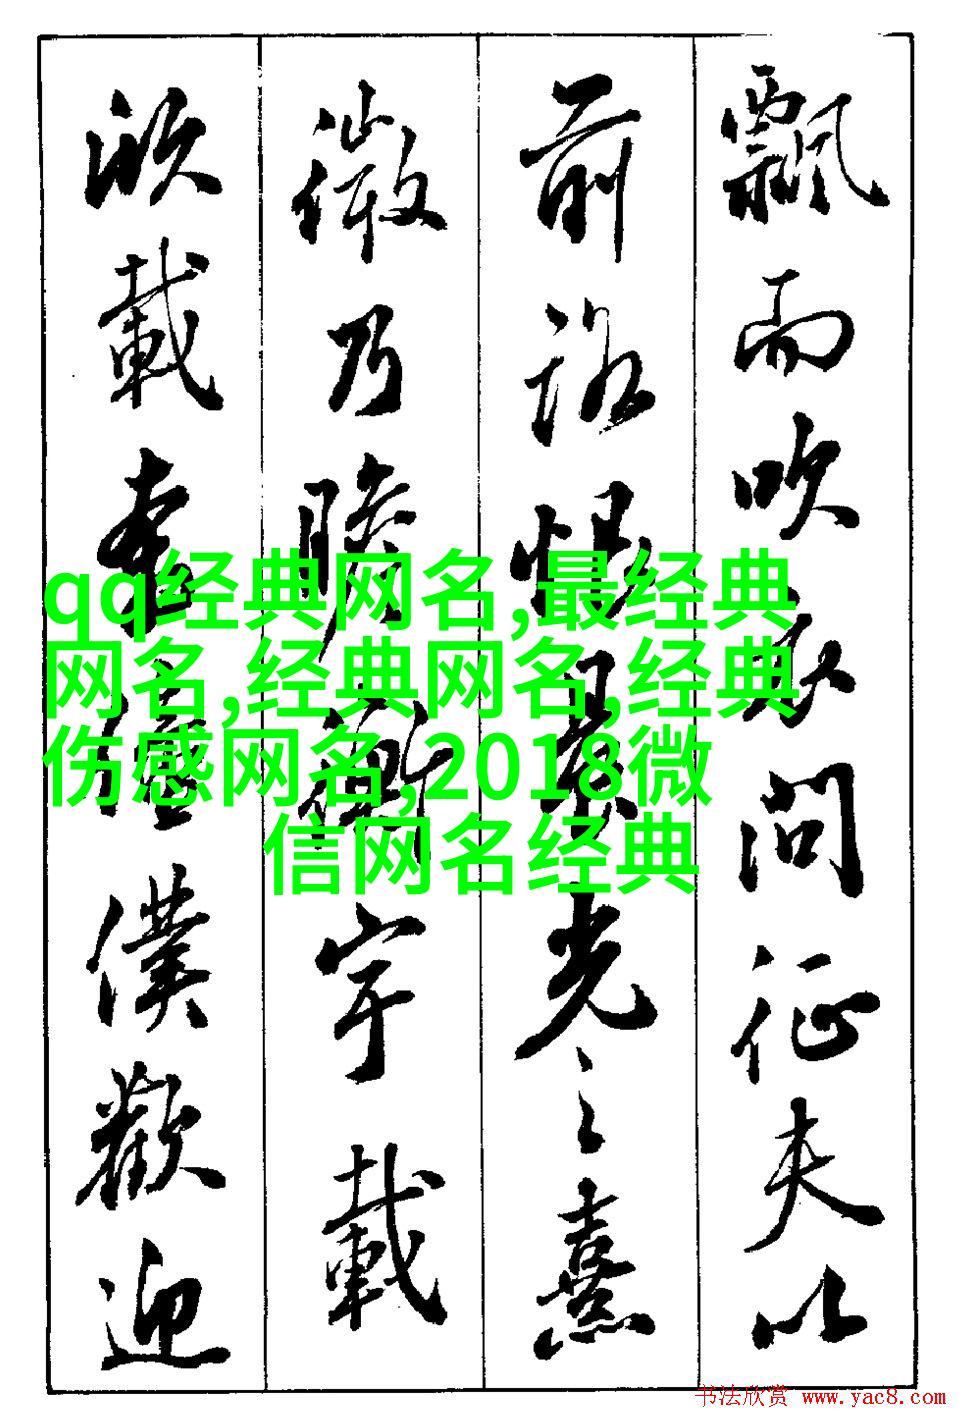 飄而吹衣問征夫以
前路恨晨光之熹
微乃瞻衡宇載
欣載奔僮僕歡迎
qq经典网名,最经典
网名,经典网名,经典
伤感网名,2018微
信网名经典
书法欣赏 www.yac8.com